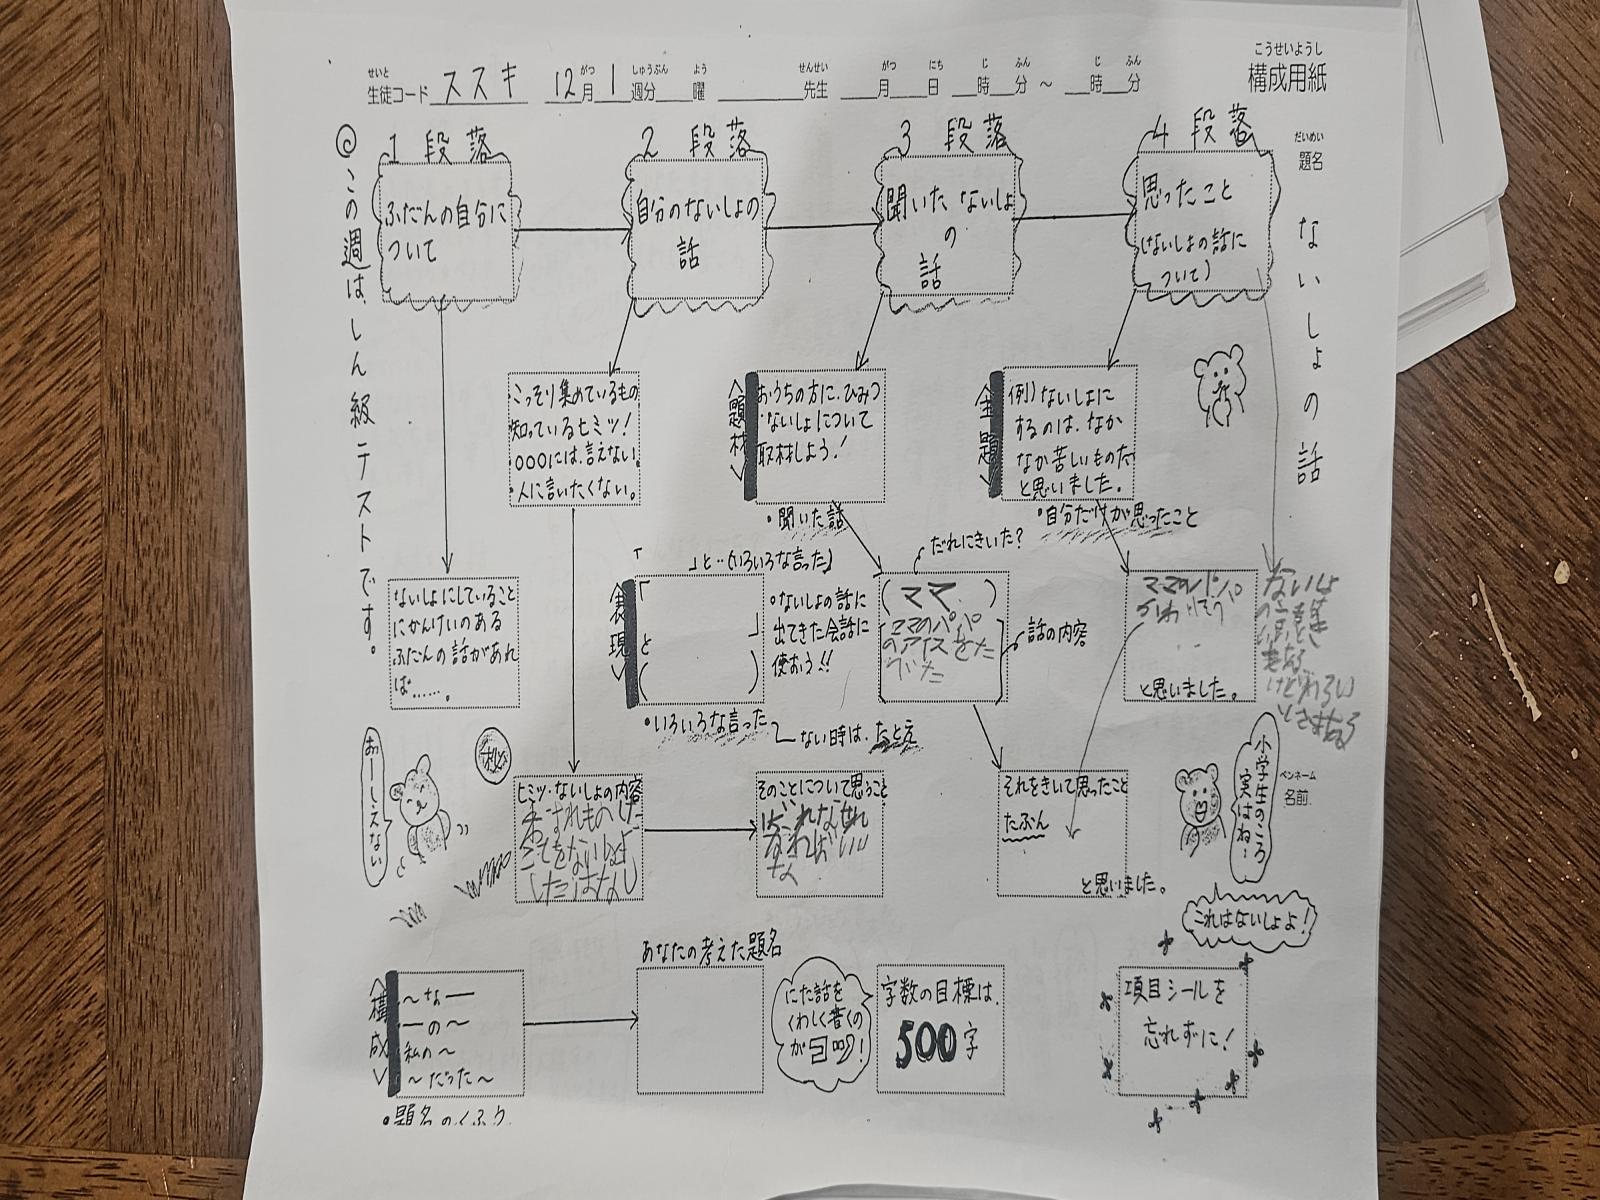 こうせいようし
構成用紙
せいと がつ しゅうぶん よう せんせい がつ にち じ ふん じ ふん
生徒コード ススキ 12月 1週分 曜 先生 月 日 時 分 ～ 時 分
だいめい
題名
ないしょの話
4 段落
思ったこと
(ないしょの話に
ついて)
3 段落
聞いた ないしょ
の
話
2 段落
自分のないしょの
話
1 段落
ふだんの自分に
ついて
◎この週は、しん級テストです。
<主題>
例)ないしょに
するのは、なか
なか苦しいものだ
と思いました。
・自分だけが思ったこと
<題材>
おうちの方に、ひみつ
・ないしょについて
取材しよう!
・聞いた話
こっそり集めているもの
知っているヒミツ!
○○○には、言えない。
・人に言いたくない。
ないしょにしていること
にかんけいのある
ふだんの話があれ
ば……。
<表現>
「
」と…(いろいろな言った)
「
」
と
( )
・ないしょの話に
出てきた会話に
使おう!!
・いろいろな言った
ない時は、たとえ
だれにきいた?
(ママ)
ママのパパ
のアイスをた
べた
話の内容
ママのパパ
かわいそう
と思いました。
ないしょ
けどわるい
ペンネーム
名前
小学生のころ
実はね…
これはないしょよ!
それをきいて思ったこと
たぶん
と思いました。
そのことについて思うこと
ければいい
な
ヒミツ・ないしょの内容
すれものし
てをないしょ
したはなし
秘
おーしえない
<構成>
～な―
―の～
私の～
～だった～
・題名のくふう
あなたの考えた題名
にた話を
くわしく書くの
が
字数の目標は、
500字
項目シールを
忘れずに!